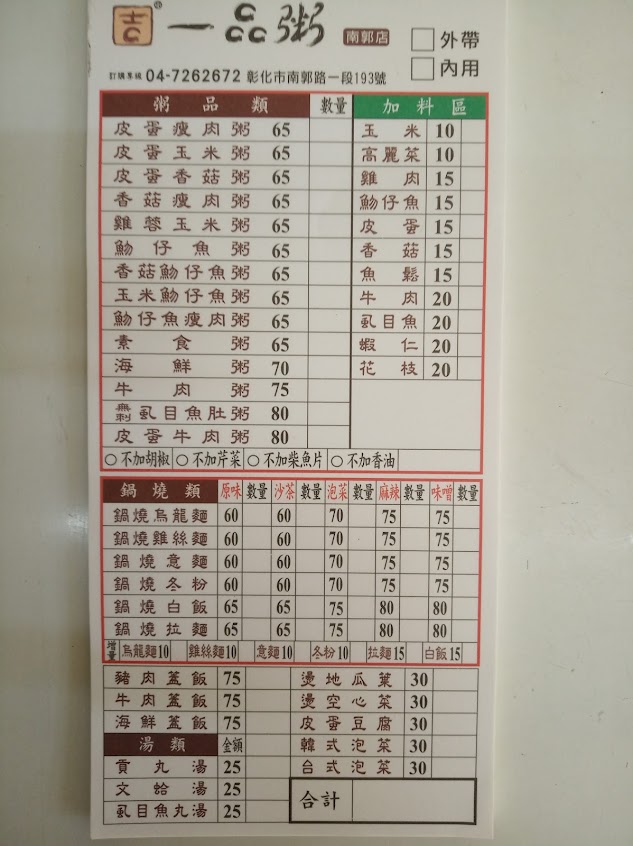 吉® 一品粥 南郭店 □外帶
訂購專線 04-7262672 彰化市南郭路一段193號 □內用
粥品類 數量 加料區
皮蛋瘦肉粥 65 玉米 10
皮蛋玉米粥 65 高麗菜 10
皮蛋香菇粥 65 雞肉 15
香菇瘦肉粥 65 魩仔魚 15
雞蓉玉米粥 65 皮蛋 15
魩仔魚粥 65 香菇 15
香菇魩仔魚粥 65 魚鬆 15
玉米魩仔魚粥 65 牛肉 20
魩仔魚瘦肉粥 65 虱目魚 20
素食粥 65 蝦仁 20
海鮮粥 70 花枝 20
牛肉粥 75
無刺虱目魚肚粥 80
皮蛋牛肉粥 80
○不加胡椒 ○不加芹菜 ○不加柴魚片 ○不加香油
鍋燒類 原味 數量 沙茶 數量 泡菜 數量 麻辣 數量 味噌 數量
鍋燒烏龍麵 60 60 70 75 75
鍋燒雞絲麵 60 60 70 75 75
鍋燒意麵 60 60 70 75 75
鍋燒冬粉 60 60 70 75 75
鍋燒白飯 65 65 75 80 80
鍋燒拉麵 65 65 75 80 80
增量 烏龍麵10 雞絲麵10 意麵10 冬粉10 拉麵15 白飯15
豬肉蓋飯 75 燙地瓜葉 30
牛肉蓋飯 75 燙空心菜 30
海鮮蓋飯 75 皮蛋豆腐 30
湯類 金額 韓式泡菜 30
貢丸湯 25 台式泡菜 30
文蛤湯 25 合計
虱目魚丸湯 25